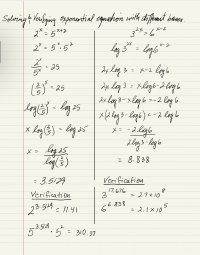 Solving & Verifying exponential equation with different bases.
2^x = 5^{x+2}
2^x = 5^x · 5^2
2^x / 5^x = 25
(2/5)^x = 25
log (2/5)^x = log 25
x log (2/5) = log 25
x = log 25 / log (2/5)
= 3.5129
Verification
2^{3.513} = 11.41
5^{3.513} · 5^2 =
3^{2x} = 6^{x-2}
log 3^{2x} = log 6^{x-2}
2x log 3 = x-2 log 6
2x log 3 = x log 6 - 2 log 6
2x log 3 - x log 6 = -2 log 6
x (2 log 3 - log 6) = -2 log 6
x = -2 log 6 / 2 log 3 - log 6
= 8.838
Verification
3^{17.676} = 2.7 × 10^8
6^{6.838} = 2.1 × 10^5